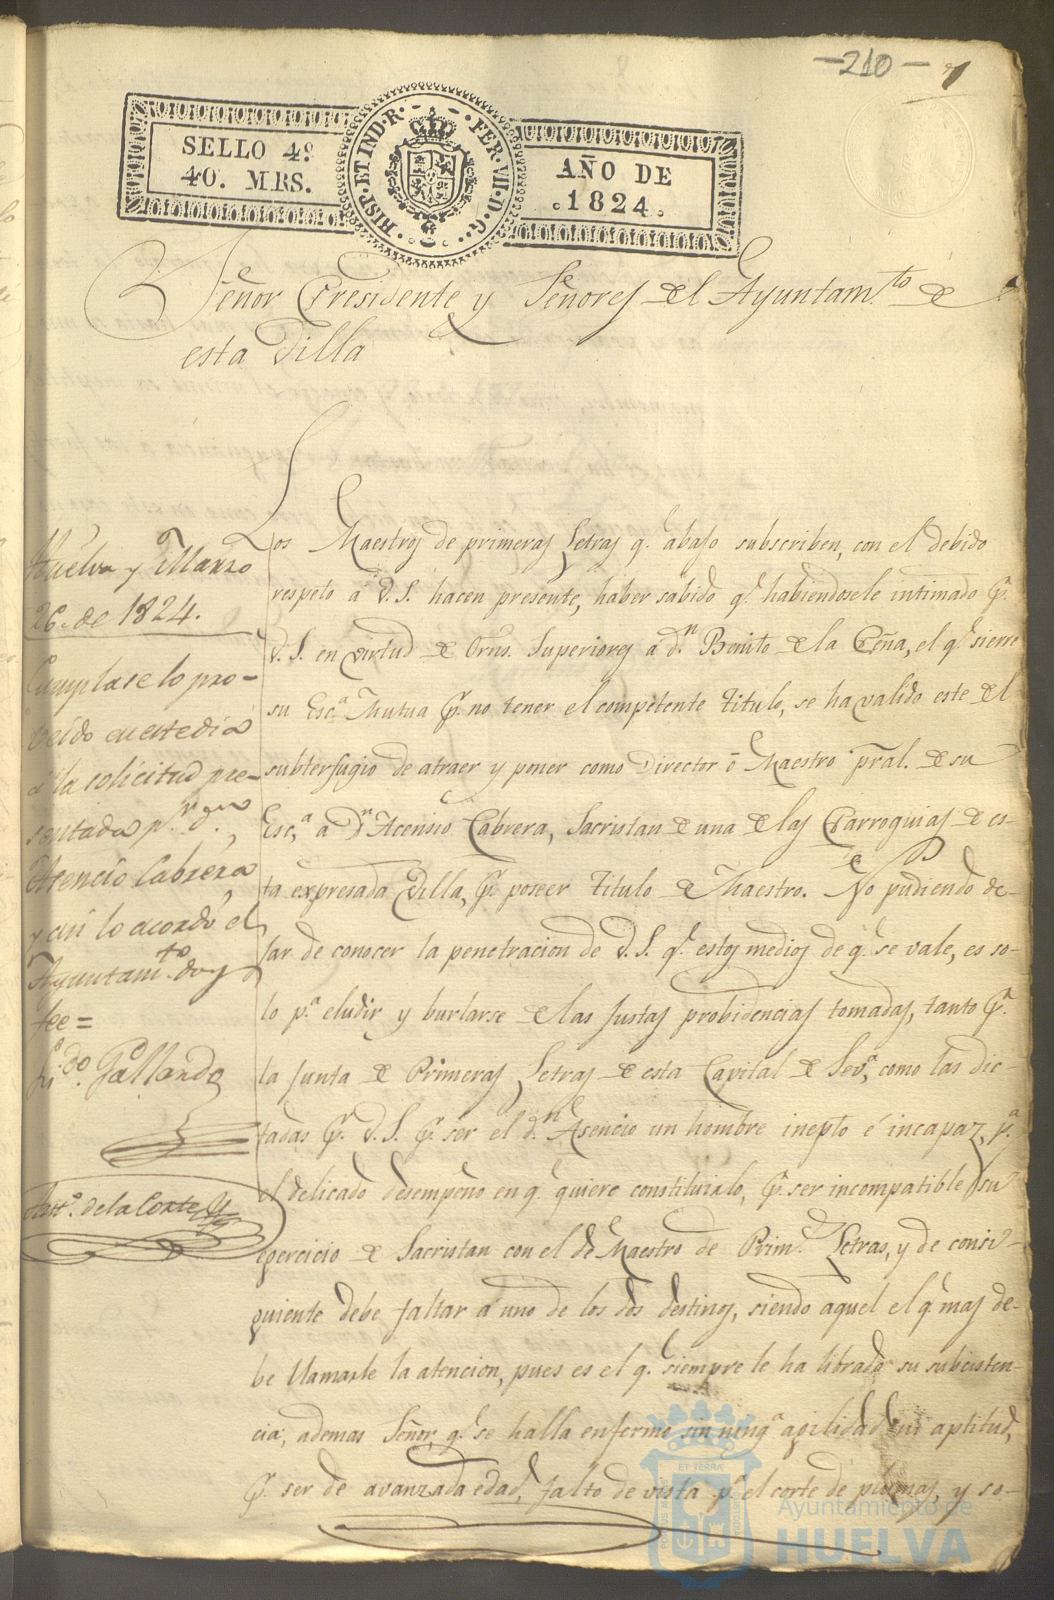 -210-
SELLO 4º
40. MRS.
HISP. ET IND. R. FER. VII. D. G.
AÑO DE
1824.
Señor Presidente y Señores del Ayuntam.to de
esta Villa
Los Maestros de primeras Letras q.e abajo subscriben, con el debido
respeto a V.S. hacen presente, haber sabido q.e habiendosele intimado p.r
V.S. en virtud de Orns. Superiores a d.n Benito de la Peña, el q.e sierre
su Esc.a Mutua p.r no tener el competente Titulo, se ha valido este del
subterfugio de atraer y poner como Director ó Maestro pral. de su
Esc.a a D.n Acensio Cabrera, Sacristan de una de las Parroquias de es-
ta expresada Villa, p.r poseer Titulo de Maestro. No pudiendo de-
jar de conocer la penetracion de V.S. q.e estos medios de q.e se vale, es so-
lo p.a eludir y burlarse de las justas probidencias tomadas, tanto p.r
la Junta de Primeras Letras de esta Capital de Sev.a, como las dic-
tadas p.r V.S. p.r ser el d.n Asencio un hombre inepto é incapaz, p.a
el delicado desempeño en q.e quiere constituirlo, p.r ser incompatible su
egercicio de Sacristan con el de Maestro de Prim.s Letras, y de consi-
guiente debe faltar a uno de los dos destinos, siendo aquel el q.e mas de-
be llamarle la atencion, pues es el q.e siempre le ha librado su subcisten-
cia, ademas Señor, q.e se halla enfermo sin ning.a agilidad ni aptitud,
p.r ser de avanzada edad, falto de vista p.a el corte de plumas, y so-
Huelva y Marzo
26. de 1824.
Cumplase lo pro-
veido en este dia
a la solicitud pre-
sentada p.r d.n
Atencio Cabrera
y asi lo acordó el
Ayuntam.to doy
fee=
Gallardo
de la Corte
ET TERRAE
Ayuntamiento de
HUELVA